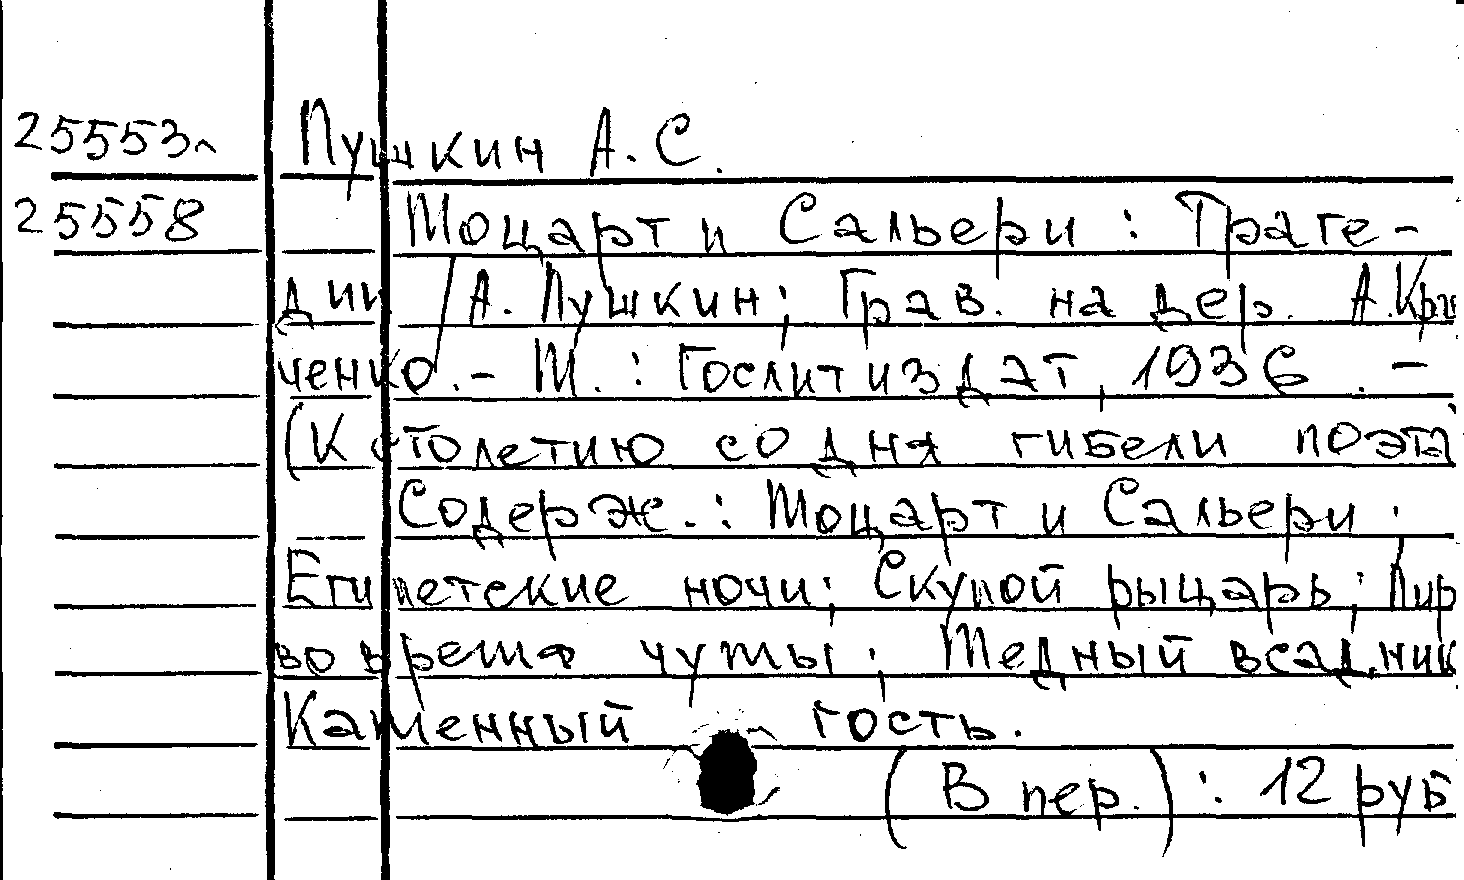 25553л Пушкин А. С.
25558 Моцарт и Сальери : Траге-
дии / А. Пушкин; Грав. на дер. А. Кра
ченко. - М. : Гослитиздат, 1936. -
(К столетию со дня гибели поэта
Содерж. : Моцарт и Сальери ;
Египетские ночи; Скупой рыцарь; Пир
во время чумы; Медный всадник
Каменный гость.
(В пер.) : 12 руб